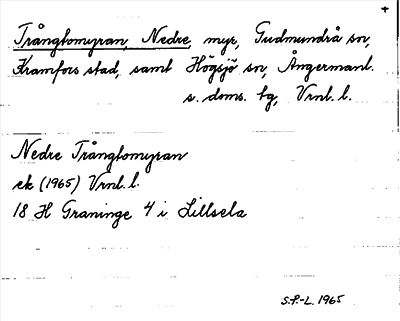 Trångtomyran, Nedre, myr, Gudmundrå sn,
Kramfors stad, samt Högsjö sn, Ångermanl.
s. doms. tg, Vrnl. l.
Nedre Trångtomyran
ek (1965) Vrnl. l.
18 H Graninge 4 i Lillsela
S.P.-L. 1965